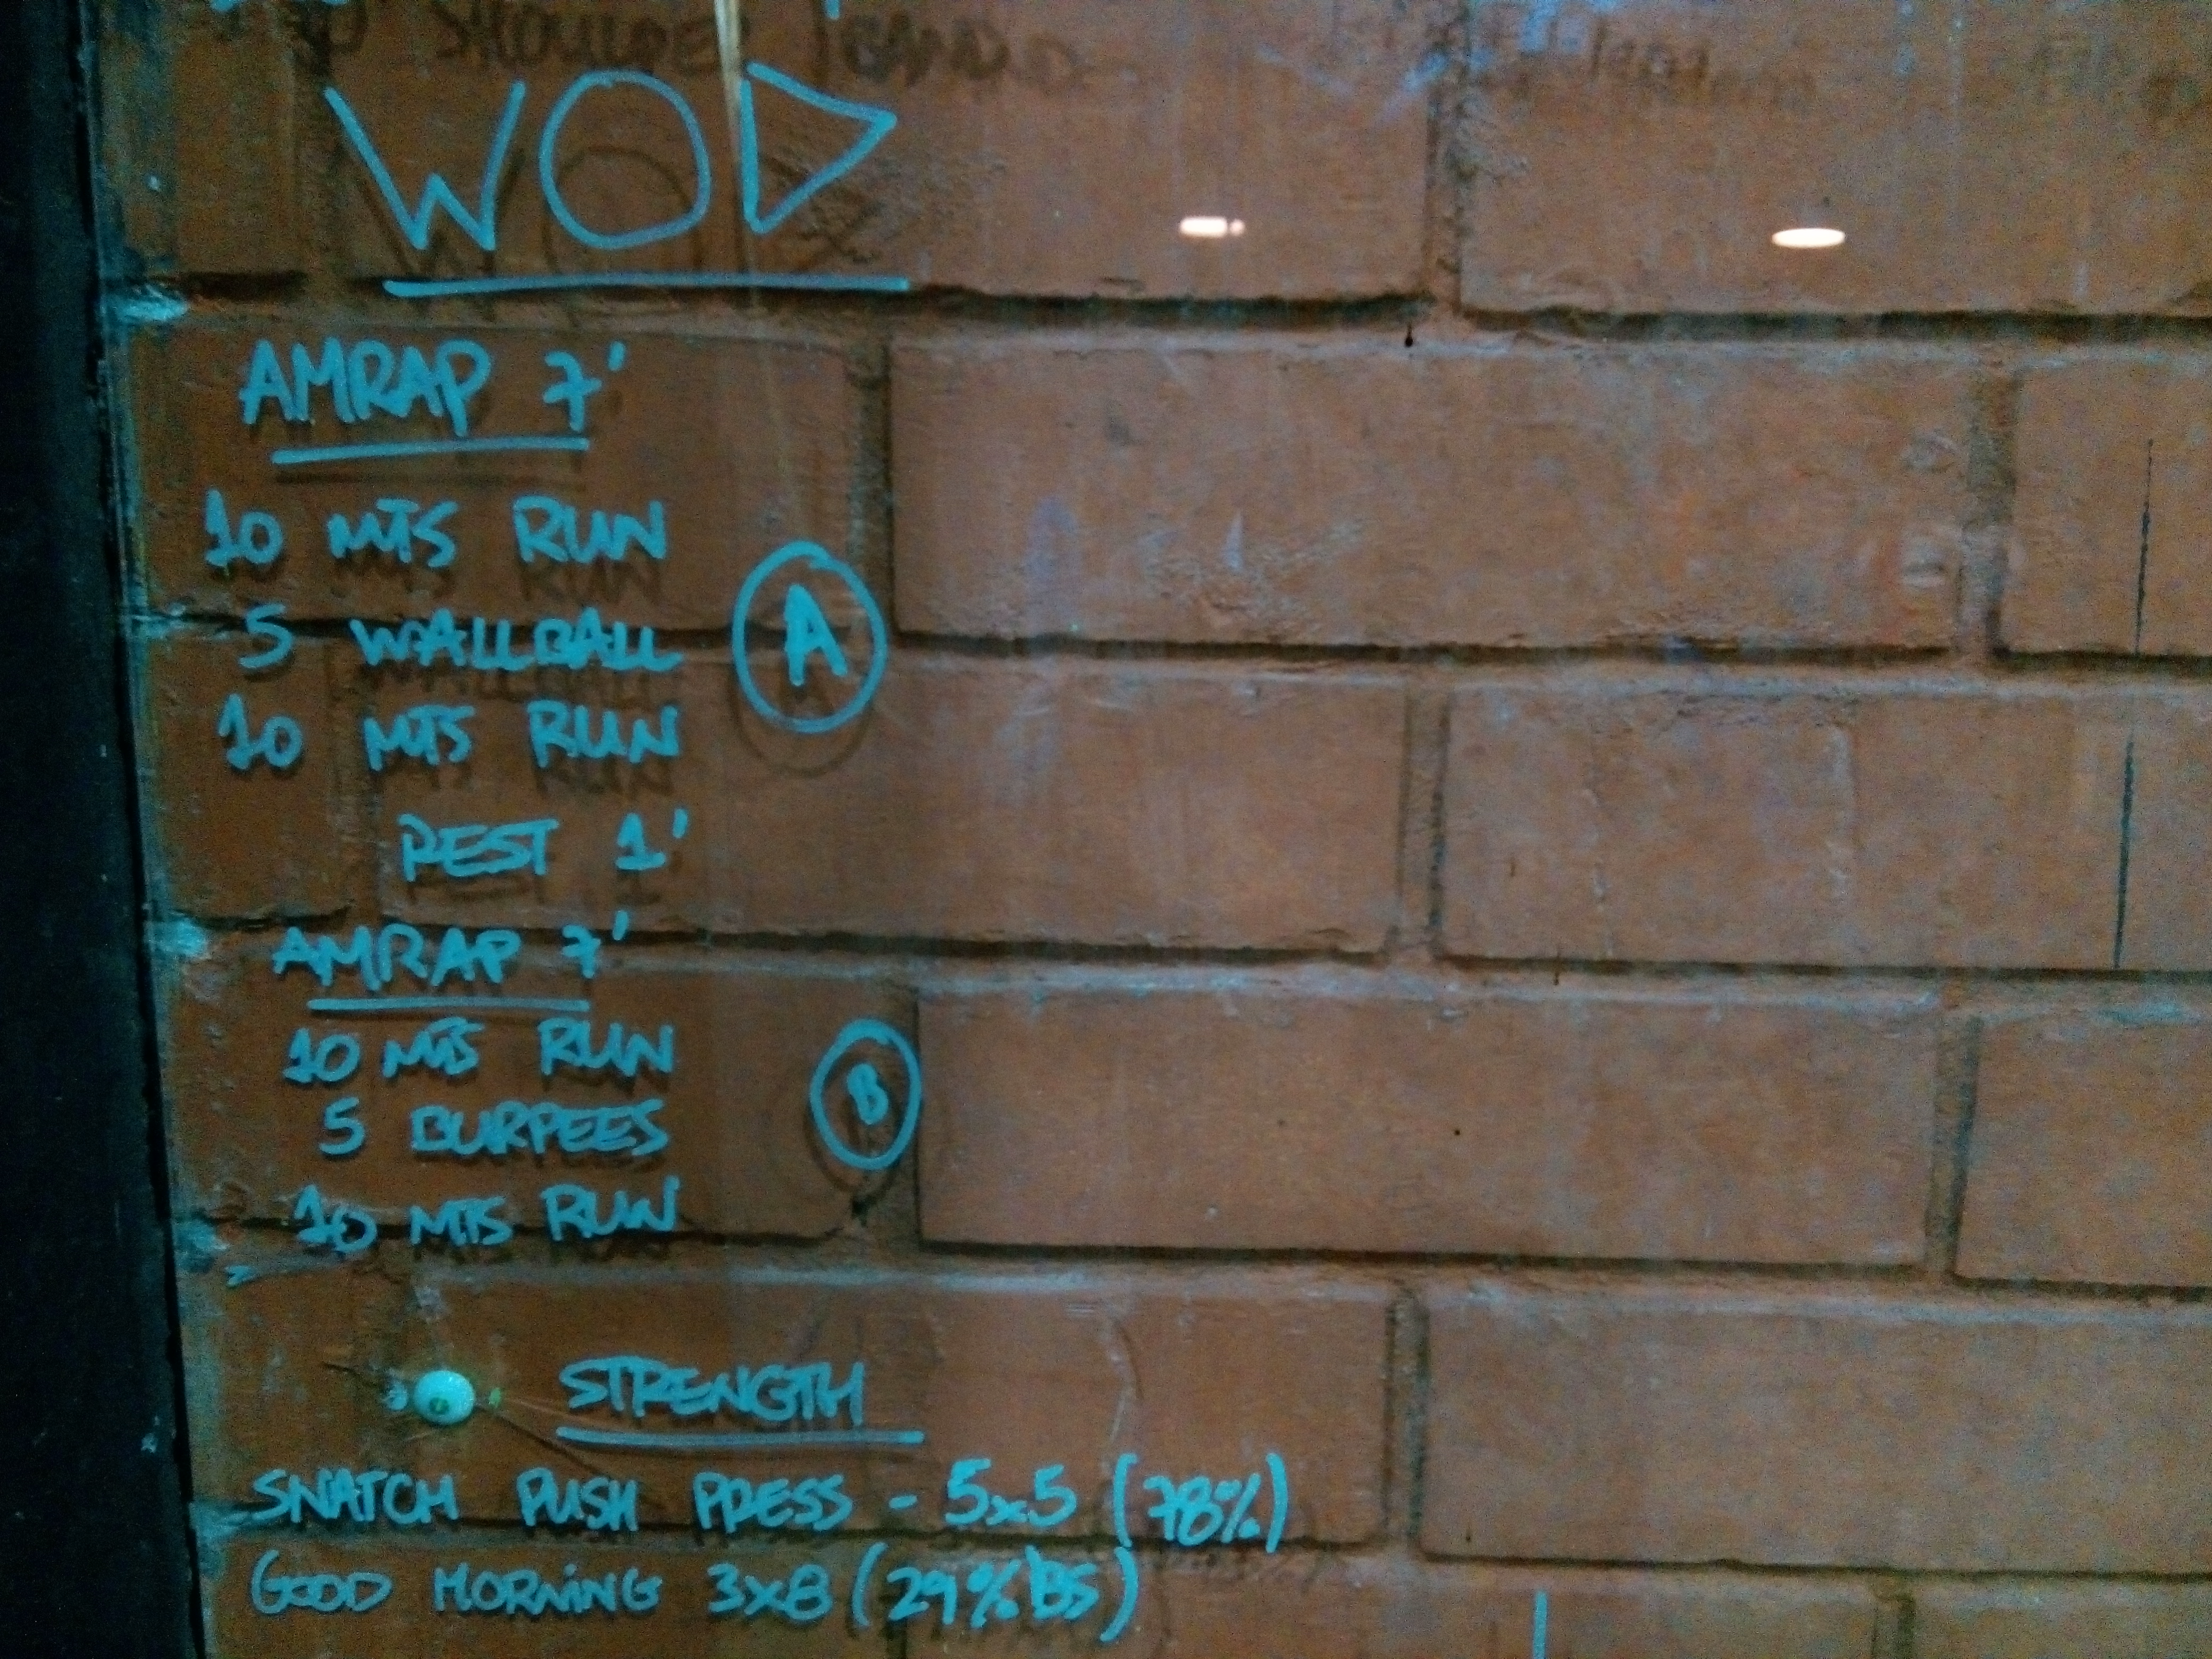 WOD
AMRAP 7'
10 MTS RUN
5 WALLBALL
10 MTS RUN
A
REST 1'
AMRAP 7'
10 MTS RUN
5 BURPEES
10 MTS RUN
B
STRENGTH
SNATCH PUSH PRESS - 5x5 (78%)
GOOD MORNING 3x8 (29% BS)